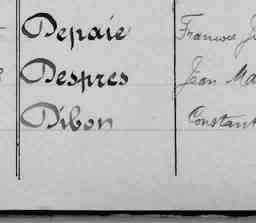 Depaie
Despres Jean Ma
Dibon Constant